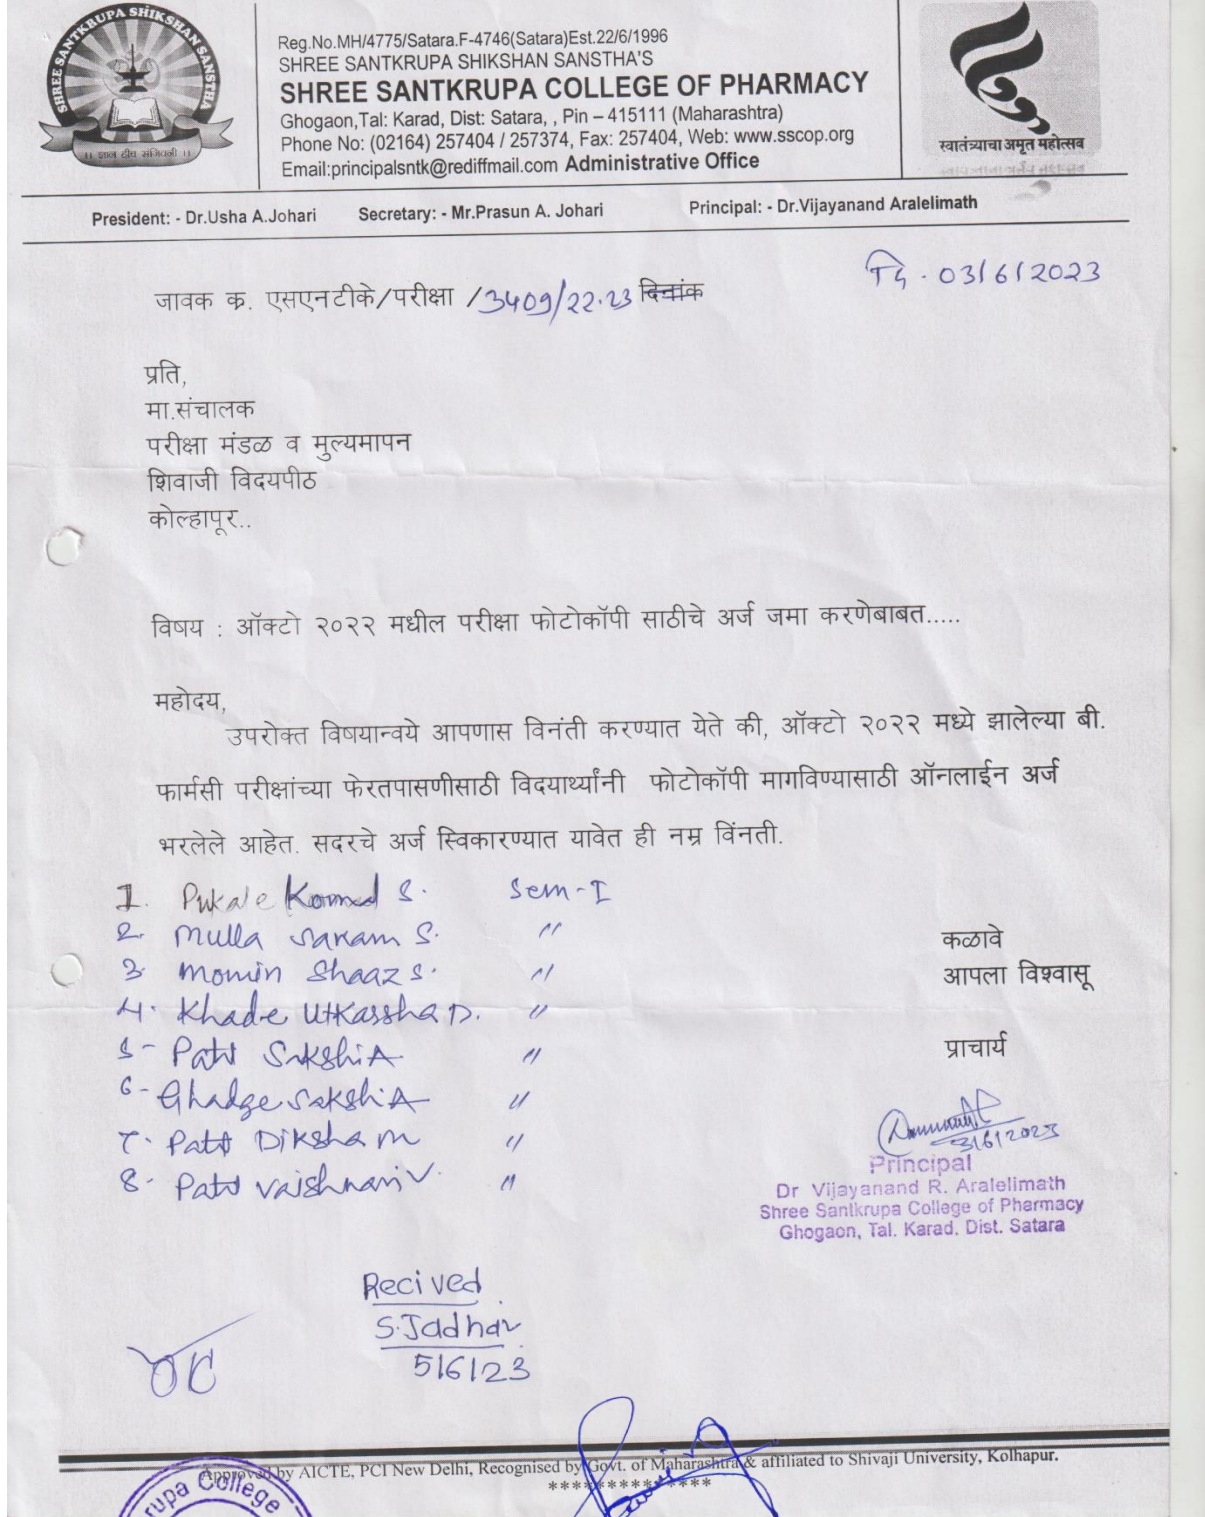 SHREE SANTKRUPA SHIKSHAN SANSTHA
।। ज्ञान दीप संजिवनी ।।
Reg.No.MH/4775/Satara.F-4746(Satara)Est.22/6/1996
SHREE SANTKRUPA SHIKSHAN SANSTHA'S
SHREE SANTKRUPA COLLEGE OF PHARMACY
Ghogaon,Tal: Karad, Dist: Satara, , Pin – 415111 (Maharashtra)
Phone No: (02164) 257404 / 257374, Fax: 257404, Web: www.sscop.org
Email:principalsntk@rediffmail.com Administrative Office
स्वातंत्र्याचा अमृत महोत्सव
President: - Dr.Usha A.Johari Secretary: - Mr.Prasun A. Johari Principal: - Dr.Vijayanand Aralelimath
दि. 03/6/2023
जावक क्र. एसएनटीके/परीक्षा /3409/22-23 दिनांक
प्रति,
मा.संचालक
परीक्षा मंडळ व मुल्यमापन
शिवाजी विदयपीठ
कोल्हापूर..
विषय : ऑक्टो २०२२ मधील परीक्षा फोटोकॉपी साठीचे अर्ज जमा करणेबाबत.....
महोदय,
उपरोक्त विषयान्वये आपणास विनंती करण्यात येते की, ऑक्टो २०२२ मध्ये झालेल्या बी.
फार्मसी परीक्षांच्या फेरतपासणीसाठी विदयार्थ्यांनी फोटोकॉपी मागविण्यासाठी ऑनलाईन अर्ज
भरलेले आहेत. सदरचे अर्ज स्विकारण्यात यावेत ही नम्र विंनती.
1. Pukale Komal S. Sem-I
2. Mulla Sanam S. "
3. Momin Shaaz S. "
4. Khade Utkassha D. "
5- Patil Sakshi A. "
6- Ghadge Sakshi A "
7. Patil Diksha M "
8. Patil Vaishnavi V. "
कळावे
आपला विश्वासू
प्राचार्य
3/6/2023
Principal
Dr Vijayanand R. Aralelimath
Shree Santkrupa College of Pharmacy
Ghogaon, Tal. Karad. Dist. Satara
Recived
S.Jadhav
5/6/23
OC
Approved by AICTE, PCI New Delhi, Recognised by Govt. of Maharashtra & affiliated to Shivaji University, Kolhapur.
****************
krupa College